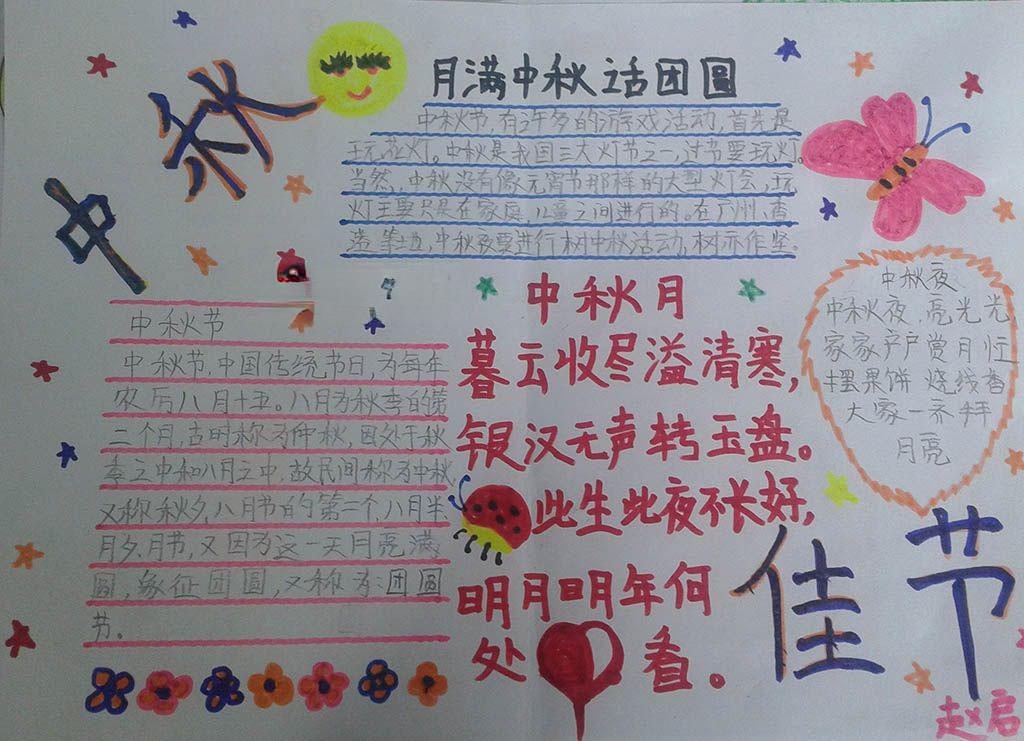 中秋
月满中秋话团圆
中秋节,有许多的游戏活动,首先是
玩花灯。中秋是我国三大灯节之一,过节要玩灯。
当然,中秋没有像元宵节那样的大型灯会,玩
灯主要只是在家庭,儿童之间进行的。在广州、香
港等地,中秋夜要进行树中秋活动,树亦作竖。
中秋节
中秋节,中国传统节日,为每年
农历八月十五。八月为秋季的第
二个月,古时称为仲秋,因处于秋
季之中和八月之中,故民间称为中秋
又称秋夕,八月节的第二个,八月半
月夕,月节,又因为这一天月亮满
圆,象征团圆,又称为团圆
节。
中秋月
暮云收尽溢清寒,
银汉无声转玉盘。
此生此夜不长好,
明月明年何
处看。
中秋夜
中秋夜,亮光光
家家户户赏月忙
摆果饼 烧线香
大家一齐拜
月亮
佳节
赵启